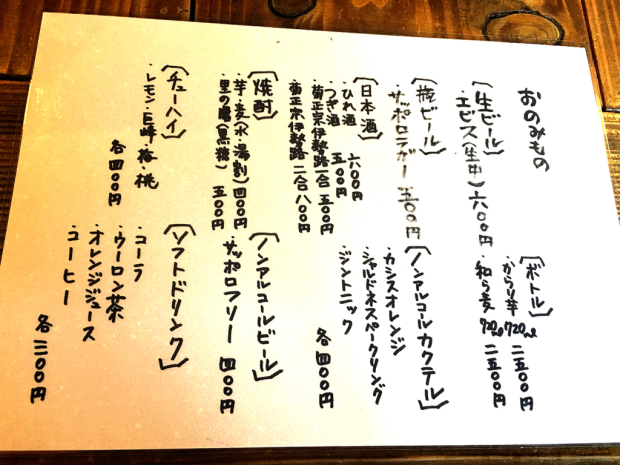 おのみもの
〔生ビール〕
エビス(生中) 六〇〇円
〔瓶ビール〕
サッポロラガー 五〇〇円
〔日本酒〕
・ひれ酒 六〇〇円
・つぎ酒 五〇〇円
・菊正宗伊勢路一合 五〇〇円
・菊正宗伊勢路 二合 八〇〇円
〔焼酎〕
芋・麦(水・湯割) 四〇〇円
里の曙(黒糖) 五〇〇円
〔チューハイ〕
・レモン・巨峰・梅・桃
各四〇〇円
〔ボトル〕
・からり芋 720ml 二五〇〇円
・和ら麦 720ml 二五〇〇円
〔ノンアルコールカクテル〕
・カシスオレンジ
・シャルドネスパークリング
・ジントニック
各四〇〇円
〔ノンアルコールビール〕
サッポロフリー 四〇〇円
〔ソフトドリンク〕
・コーラ
・ウーロン茶
・オレンジジュース
・コーヒー
各三〇〇円